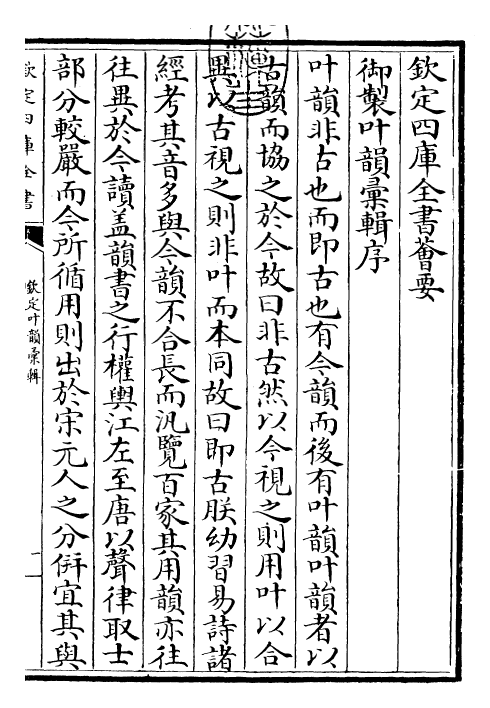 欽定四庫全書薈要
御製叶韻彚輯序
叶韻非古也而即古也有今韻而後有叶韻叶韻者以
古韻而協之於今故曰非古然以今視之則用叶以合
異以古視之則非叶而本同故曰即古朕幼習易詩諸
經考其音多與今韻不合長而汎覽百家其用韻亦往
往異於今讀盖韻書之行權輿江左至唐以聲律取士
部分較嚴而今所循用則出於宋元人之分併宜其與
欽定四庫全書
欽定叶韻彚輯
一